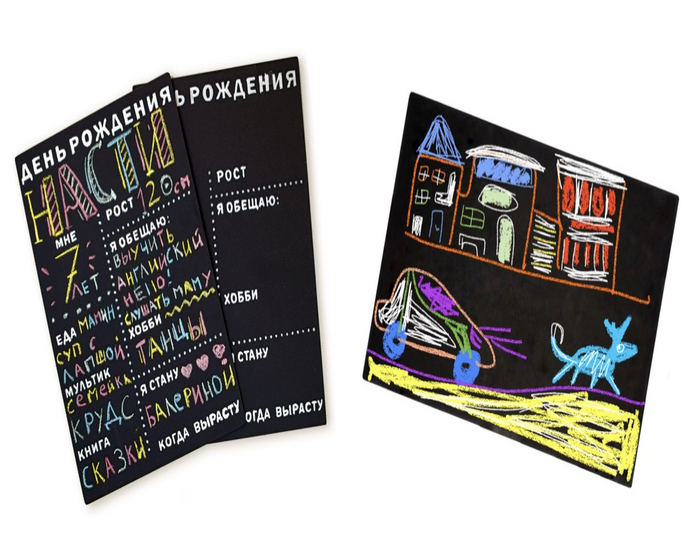 ДЕНЬ РОЖДЕНИЯ
НАСТИ
РОСТ 120 см
МНЕ
7
ЛЕТ
Я ОБЕЩАЮ:
ВЫУЧИТЬ
АНГЛИЙСКИЙ
НЕ ПО!
СЛУШАТЬ МАМУ
ЕДА МАМИН
СУП С
ЛАПШОЙ
МУЛЬТИК
СЕМЕЙКА
КРУДС
КНИГА
СКАЗКИ
ХОББИ
ТАНЦЫ
Я СТАНУ
БАЛЕРИНОЙ
КОГДА ВЫРАСТУ
Ь РОЖДЕНИЯ
РОСТ
Я ОБЕЩАЮ:
ХОББИ
СТАНУ
ОГДА ВЫРАСТУ